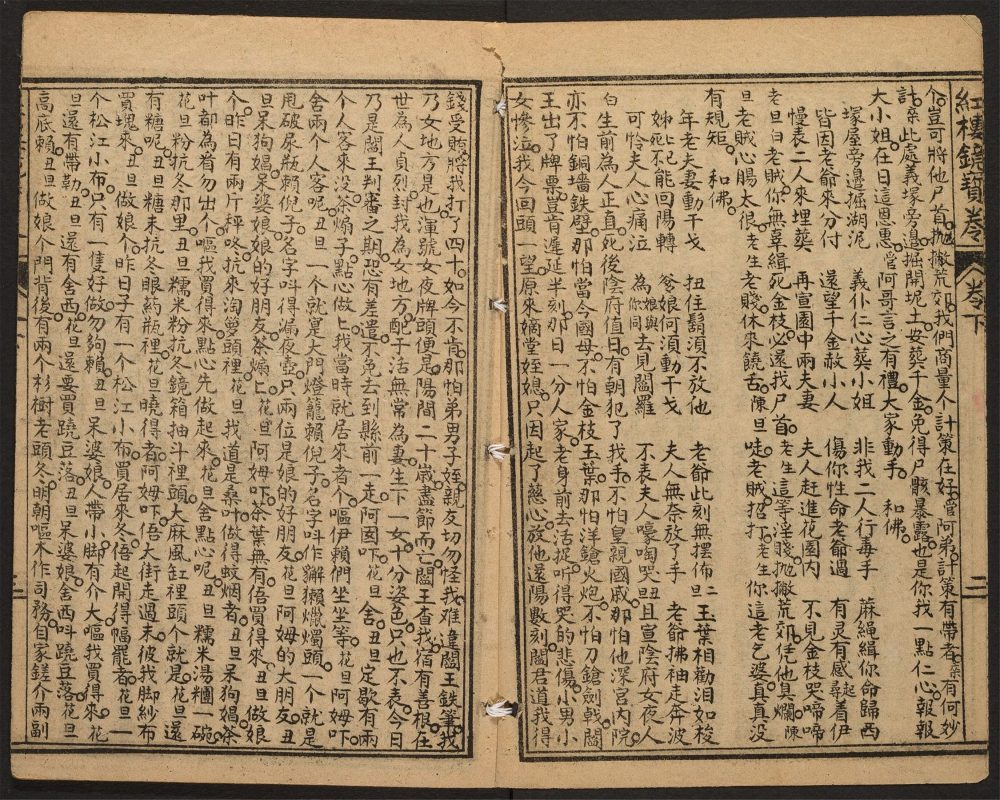 紅樓鏡寶卷 卷下 二
个豈可將他尸首抛撇荒郊我們商量个計策在好管阿弟計策有帶者柒有何妙
計柒此處義塚旁邊掘開坭土安葬千金免得尸骸暴露也是你我一點仁心報報
大小姐在日這恩惠管阿哥言之有禮大家動手 和佛
塚屋旁邊掘湖泥 義仆仁心葬小姐 非我二人行毒手 蔴繩緝你命歸西
皆因老爺來分付 還望千金赦小人 傷你性命老爺過 有灵有感起尋着伊
慢表二人來埋葬 再宣園中兩夫妻 夫人赶進花園內 不見金枝哭啼啼
老旦白老賊你無辜緝死金枝必還我尸首老生這等淫賤抛撇荒郊凭他臭爛陳
旦老賊心腸太很老生老賤休來饒舌陳旦哇老賊招打老生你這老乞婆真真没
有規矩 和佛
年老夫妻動干戈 扭住鬍須不放他 老爺此刻無摆佈 二玉葉相勸泪如梭
姊妣已死不能回陽轉 爹娘何須動干戈 夫人無奈放了手 老爺拂袖走奔波
可怜夫人心痛泣 為娘與你同去見閻羅 不表夫人嚎啕哭 且宣陰府女夜人
白生前為人正直死後陰府值日有朝犯了我手不怕皇親國戚那怕他深宮內院
亦不怕銅墻鉄壁那怕當今國母不怕金枝玉葉那怕洋鎗火炮不怕刀鎗劍戟閻
王出了牌票豈肯遲延半刻那日一分人家老身前去活捉听得哭的悲傷小男小
女慘泣我今回頭一望原來嫡堂姪媳只因起了慈心放他還陽數刻閻君道我得
錢受賄將我打了四十如今不肯那怕弟男子姪親友切勿怪我难違閻王鉄筆我
乃女地方是也渾號女夜牌頭便是陽間二十歲盡節而亡閻王查我宿有善根在
世為人貞烈封我為女地方配于活無常為妻生下一女十分姿色只也不表今日
乃是閻王判審之期恐有差遣不免去到縣前一走阿囡吓花旦舍丑旦定歇有兩
个人客來没茶煽子點心做上我當時就居來者个嘔伊賴們坐坐等花旦阿姆吓
舍兩个人客呢丑旦一个就是大門燈籠賴倪子名字呌作獬獺爦爥頭一个就是
甩破尿瓶賴倪子名字呌得漏夜壺只兩位是娘的好朋友花旦阿姆的大朋友丑
旦呆狗娼呆婆娘娘的好朋友茶煽上花旦阿姆吓茶葉無有俉買得來丑旦做娘
个昨日有兩斤枰咚抗來淘箩頭裡花旦我道是桑叶做得蚊烟者丑旦呆狗娼茶
叶都為着勿出个嘔我買得來點心先做起來花旦舍點心呢丑旦糯米湯糰一碗
花旦粉抗冬那里丑旦糯米粉抗冬鏡箱抽斗裡頭大麻風缸裡頭个就是花旦還
有糖呢丑旦糖末抗冬眼葯瓶裡花旦曉得者阿姆吓俉大街走過末彼我脚紗布
買塊來丑旦做娘个昨日子有一个松江小布買居來冬俉起開得幅罷者花旦一
个松江小布只有一隻好做勿夠賴丑旦呆婆娘人帶小脚有介大嘔我買得來花
旦還有帶勒丑旦還有舍西花旦還要買蹺豆落丑旦呆婆娘舍西呌蹺豆落花旦
高底賴丑旦做娘个門背後有兩个杉樹老頭冬明朝嘔木作司務自家鎈介兩副